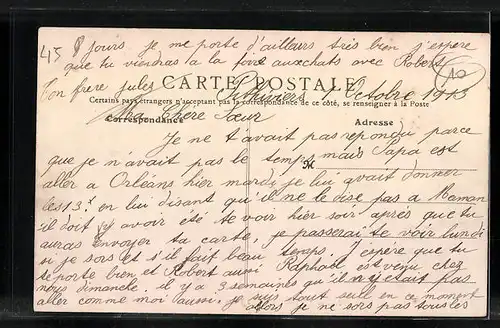 8 jours je me porte d'ailleurs très bien j'espère
que tu viendras a la foire aux chats avec Robert
Ton frère Jules
CARTE POSTALE
Pithiviers 1 Octobre 1913
Certains pays étrangers n'acceptant pas la correspondance de ce côté, se renseigner à la Poste
Ma Chère Sœur
Correspondance
Adresse
Je ne t'avait pas repondu parce
que je n'avait pas le temps mais Papa est
M
aller a Orléans hier mardi je lui avait donner
les 13f en lui disant qu'il ne le dise pas a Maman
il doit y avoir été te voir hier soir après que tu
auras envoyer ta carte, je passerai te voir lundi
si je sors et s'il fait beau temps. J'espère que tu
te porte bien et Robert aussi Raphaël est venu chez
nous dimanche. il y a 3 semaines qu'il n'y était pas
aller comme moi aussi. je suis tout seul en ce moment
alors je ne sors pas tous les